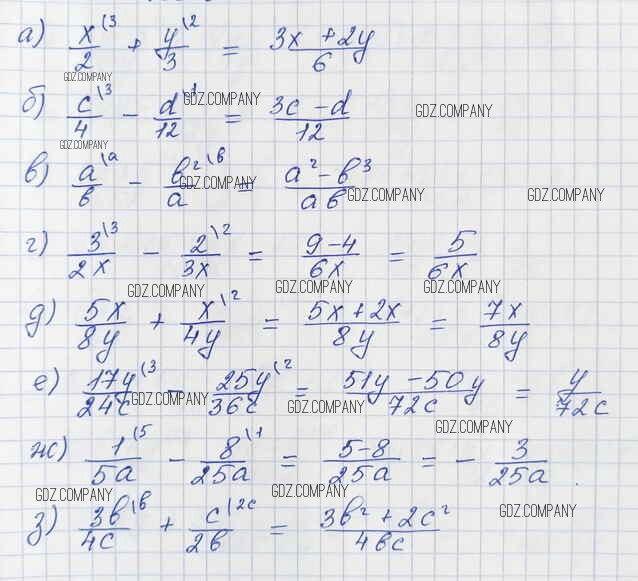 а) x\3/2 + y\2/3 = 3x + 2y/6
GDZ.COMPANY
б) c\3/4 − d\1/12 = 3c − d/12
GDZ.COMPANY GDZ.COMPANY
GDZ.COMPANY
в) a\a/b − b²\b/a = a² − b³/ab
GDZ.COMPANY GDZ.COMPANY GDZ.COMPANY
г) 3\3/2x − 2\2/3x = 9−4/6x = 5/6x
GDZ.COMPANY GDZ.COMPANY GDZ.COMPANY
д) 5x/8y + x\2/4y = 5x + 2x/8y = 7x/8y
е) 17y\3/24c − 25y\2/36c = 51y − 50y/72c = y/72c
GDZ.COMPANY GDZ.COMPANY GDZ.COMPANY
ж) 1\5/5a − 8\1/25a = 5−8/25a = − 3/25a.
GDZ.COMPANY GDZ.COMPANY GDZ.COMPANY
з) 3b\b/4c + c\2c/2b = 3b² + 2c²/4bc